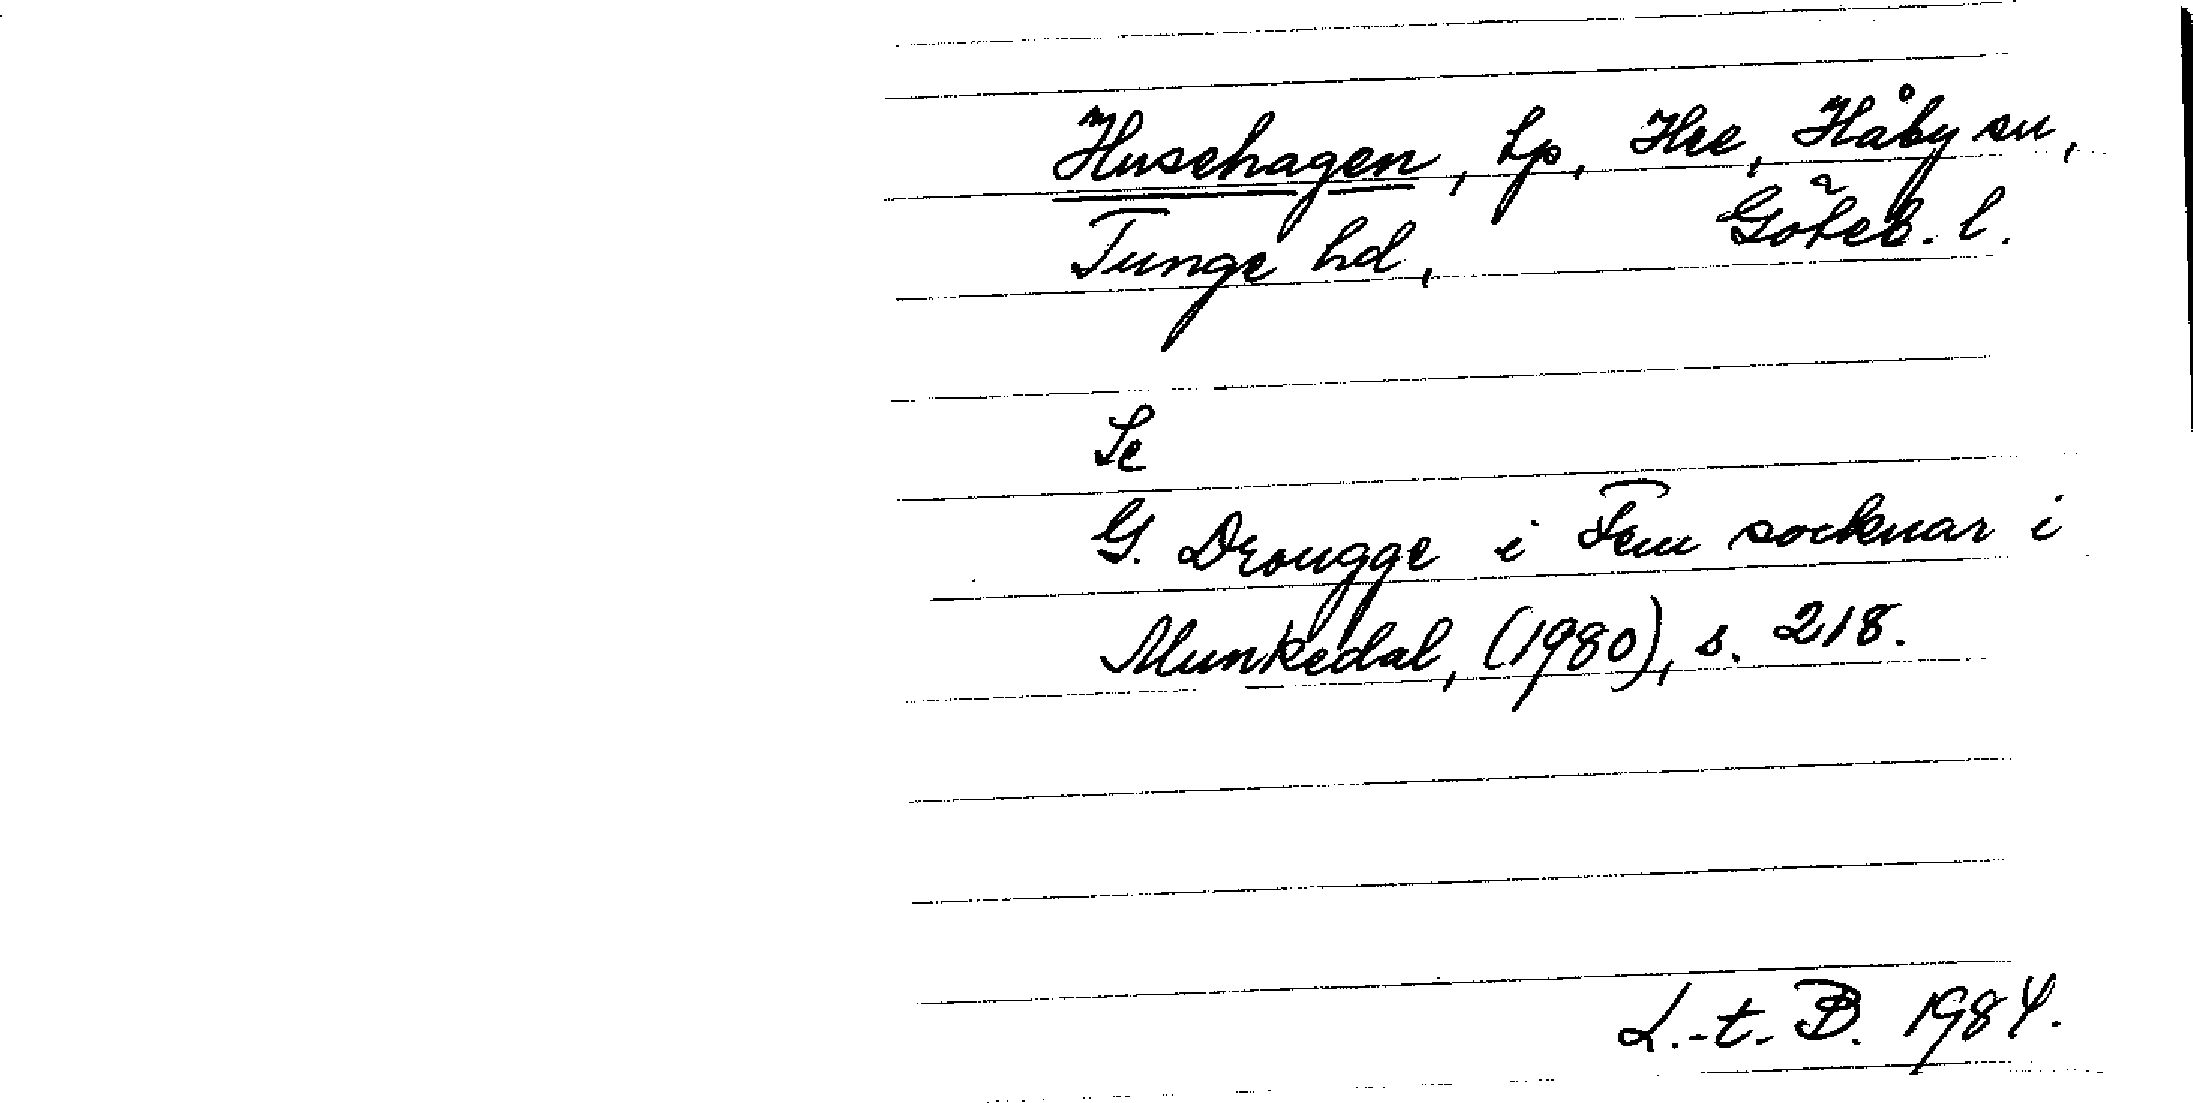 Husehagen, tp, Hee, Håby sn,
Tunge hd, Göteb. l.
Se
G. Drougge i Fem socknar i
Munkedal, (1980), s. 218.
L.-t. B. 1984.